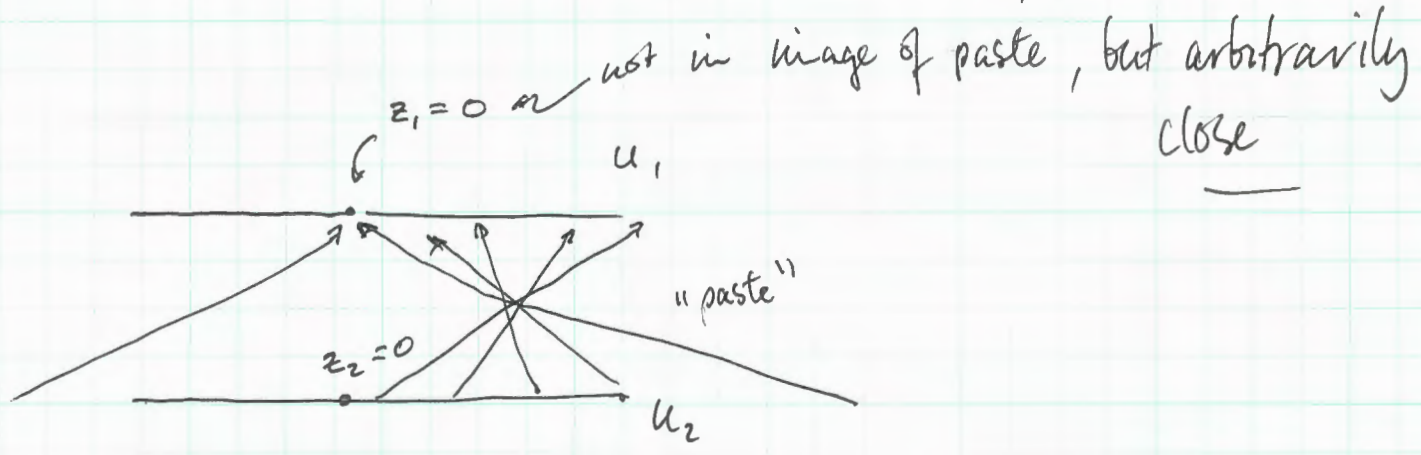 not in image of paste, but arbitrarily
close
z₁ = 0
U₁
"paste"
z₂ = 0
U₂